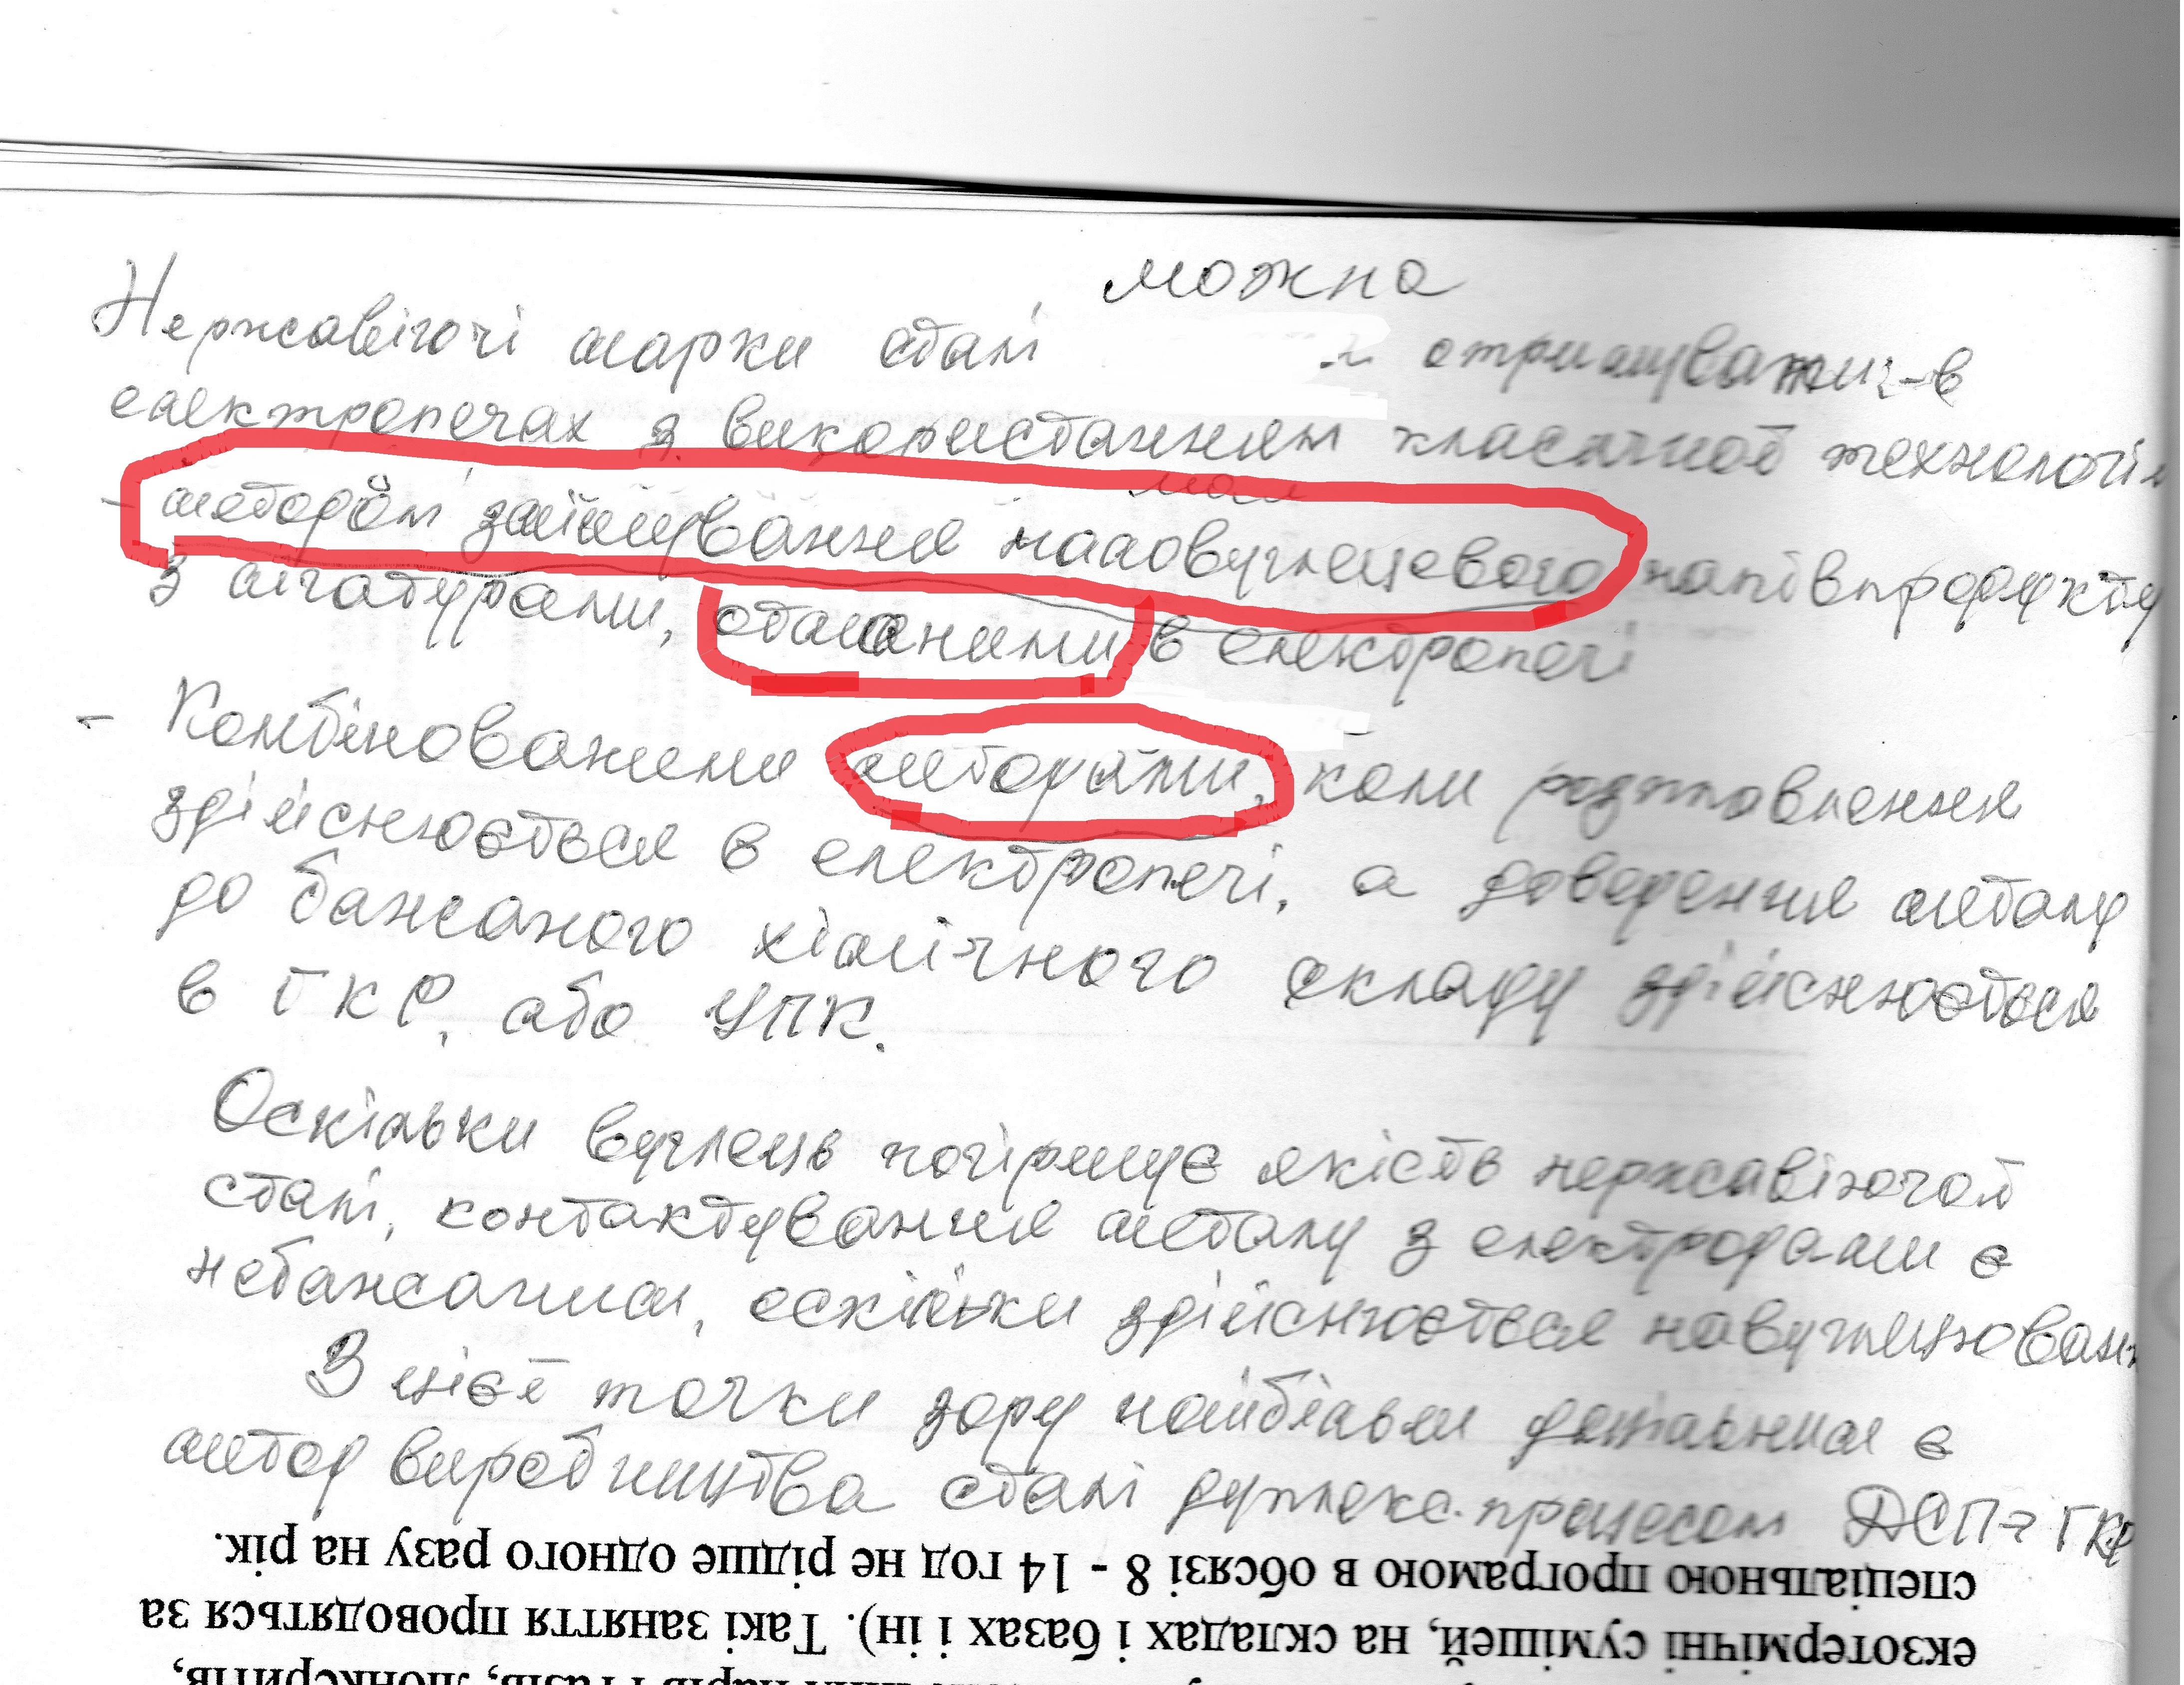 можна
Нержавіючі марки сталі отримувати в
електропечах з використанням класичної технології
мал
- методом змішування маловуглецевого напівпродукту
з лігатурами, сталими в електропечі
- Комбінованими методами, коли розплавлення
здійснюється в електропечі, а доведення металу
до бажаного хімічного складу здійснюється
в ГКР, або УПК.
Оскільки вуглець погіршує якість нержавіючої
сталі, контактування металу з електродами є
небажаним, оскільки здійснюється навуглецюван
З цієї точки зору найбільш доцільним є
метод виробництва сталі дуплекс-процесом ДСП-ГКР
спеціальною програмою в обсязі 8 - 14 год не рідше одного разу на рік.
екзотермічні сумішей, на складах і базах і ін). Такі заняття проводяться за